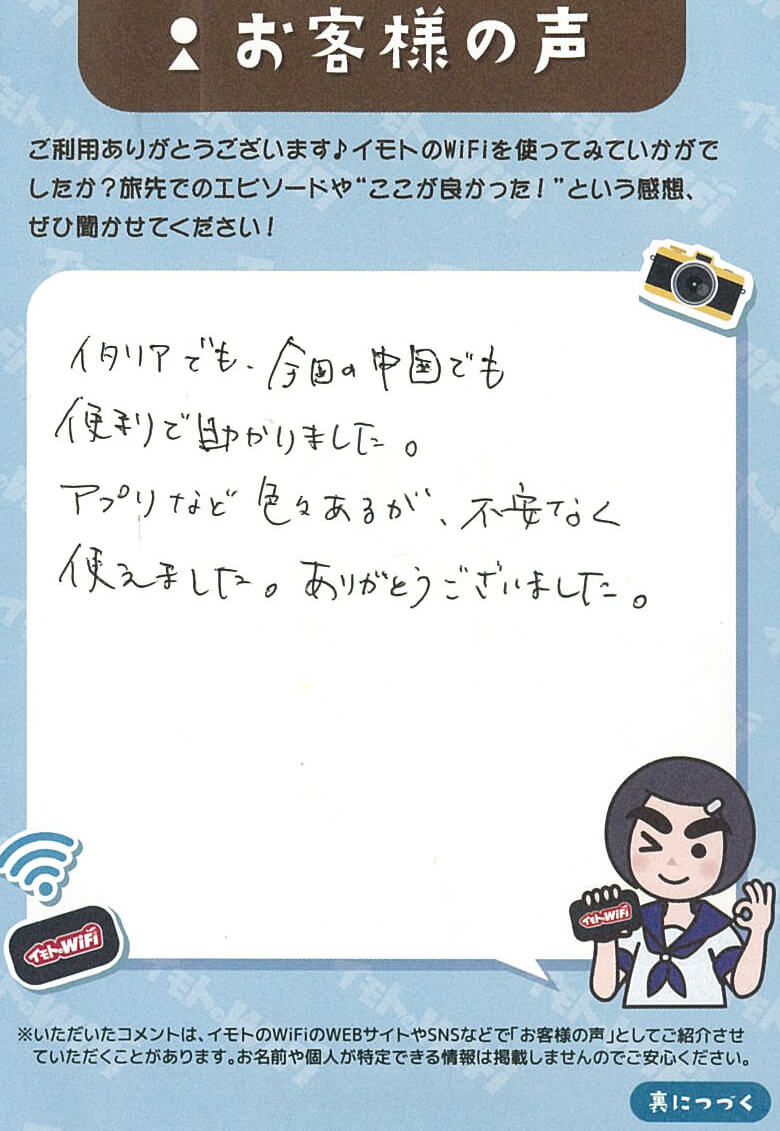 お客様の声
ご利用ありがとうございます♪イモトのWiFiを使ってみていかがで
したか？旅先でのエピソードや“ここが良かった！”という感想、
ぜひ聞かせてください！
イタリアでも、今回の中国でも
便利で助かりました。
アプリなど色々あるが、不安なく
使えました。ありがとうございました。
イモトのWiFi
イモトのWiFi
※いただいたコメントは、イモトのWiFiのWEBサイトやSNSなどで「お客様の声」としてご紹介させ
ていただくことがあります。お名前や個人が特定できる情報は掲載しませんのでご安心ください。
裏につづく